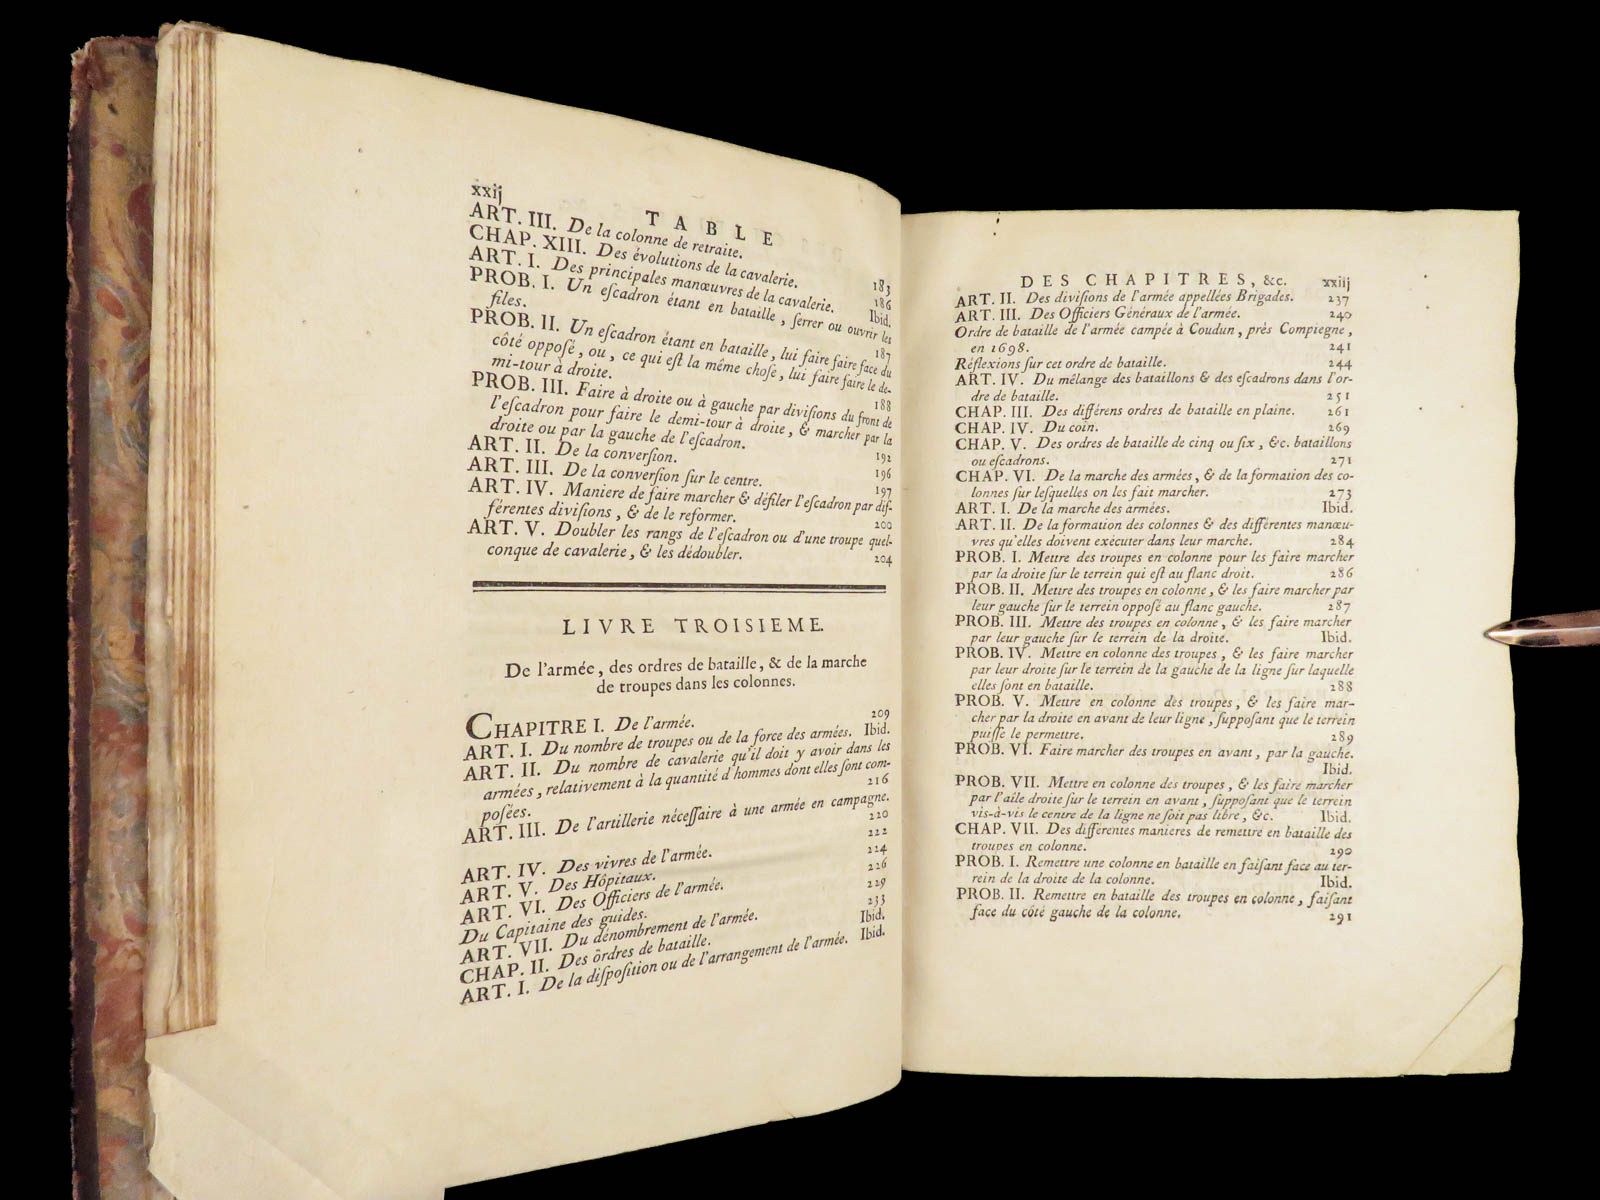 xxij
TABLE
ART. III. De la colonne de retraite. 183
CHAP. XIII. Des évolutions de la cavalerie. 186
ART. I. Des principales manœuvres de la cavalerie. Ibid.
PROB. I. Un eſcadron étant en bataille, ſerrer ou ouvrir les
files. 187
PROB. II. Un eſcadron étant en bataille, lui faire faire face du
côté oppoſé, ou, ce qui eſt la même choſe, lui faire faire le de-
mi-tour à droite. 188
PROB. III. Faire à droite ou à gauche par diviſions du front de
l'eſcadron pour faire le demi-tour à droite, & marcher par la
droite ou par la gauche de l'eſcadron. 192
ART. II. De la converſion. 196
ART. III. De la converſion ſur le centre. 197
ART. IV. Maniere de faire marcher & défiler l'eſcadron par diſ-
férentes diviſions, & de le reformer. 200
ART. V. Doubler les rangs de l'eſcadron ou d'une troupe quel-
conque de cavalerie, & les dédoubler. 204
LIVRE TROISIEME.
De l'armée, des ordres de bataille, & de la marche
de troupes dans les colonnes.
CHAPITRE I. De l'armée. 209
ART. I. Du nombre de troupes ou de la force des armées. Ibid.
ART. II. Du nombre de cavalerie qu'il doit y avoir dans les
armées, relativement à la quantité d'hommes dont elles ſont com-
poſées. 216
ART. III. De l'artillerie néceſſaire à une armée en campagne.
220
ART. IV. Des vivres de l'armée. 222
ART. V. Des Hôpitaux. 224
ART. VI. Des Officiers de l'armée. 226
Du Capitaine des guides. 229
ART. VII. Du dénombrement de l'armée. 233
CHAP. II. Des ordres de bataille. Ibid.
ART. I. De la diſpoſition ou de l'arrangement de l'armée. Ibid.
DES CHAPITRES, &c. xxiij
ART. II. Des diviſions de l'armée appellées Brigades. 237
ART. III. Des Officiers Généraux de l'armée. 240
Ordre de bataille de l'armée campée à Coudun, près Compiegne,
en 1698. 241
Réflexions ſur cet ordre de bataille. 244
ART. IV. Du mélange des bataillons & des eſcadrons dans l'or-
dre de bataille. 251
CHAP. III. Des différens ordres de bataille en plaine. 261
CHAP. IV. Du coin. 269
CHAP. V. Des ordres de bataille de cinq ou ſix, &c. bataillons
ou eſcadrons. 271
CHAP. VI. De la marche des armées, & de la formation des co-
lonnes ſur leſquelles on les fait marcher. 273
ART. I. De la marche des armées. Ibid.
ART. II. De la formation des colonnes & des différentes manœu-
vres qu'elles doivent exécuter dans leur marche. 284
PROB. I. Mettre des troupes en colonne pour les faire marcher
par la droite ſur le terrein qui eſt au flanc droit. 286
PROB. II. Mettre des troupes en colonne, & les faire marcher par
leur gauche ſur le terrein oppoſé au flanc gauche. 287
PROB. III. Mettre des troupes en colonne, & les faire marcher
par leur gauche ſur le terrein de la droite. Ibid.
PROB. IV. Mettre en colonne des troupes, & les faire marcher
par leur droite ſur le terrein de la gauche de la ligne ſur laquelle
elles ſont en bataille. 288
PROB. V. Mettre en colonne des troupes, & les faire mar-
cher par la droite en avant de leur ligne, ſuppoſant que le terrein
puiſſe le permettre. 289
PROB. VI. Faire marcher des troupes en avant, par la gauche.
Ibid.
PROB. VII. Mettre en colonne des troupes, & les faire marcher
par l'aîle droite ſur le terrein en avant, ſuppoſant que le terrein
vis-à-vis le centre de la ligne ne ſoit pas libre, &c. Ibid.
CHAP. VII. Des différentes manieres de remettre en bataille des
troupes en colonne. 290
PROB. I. Remettre une colonne en bataille en faiſant face au ter-
rein de la droite de la colonne. Ibid.
PROB. II. Remettre en bataille des troupes en colonne, faiſant
face du côté gauche de la colonne. 291